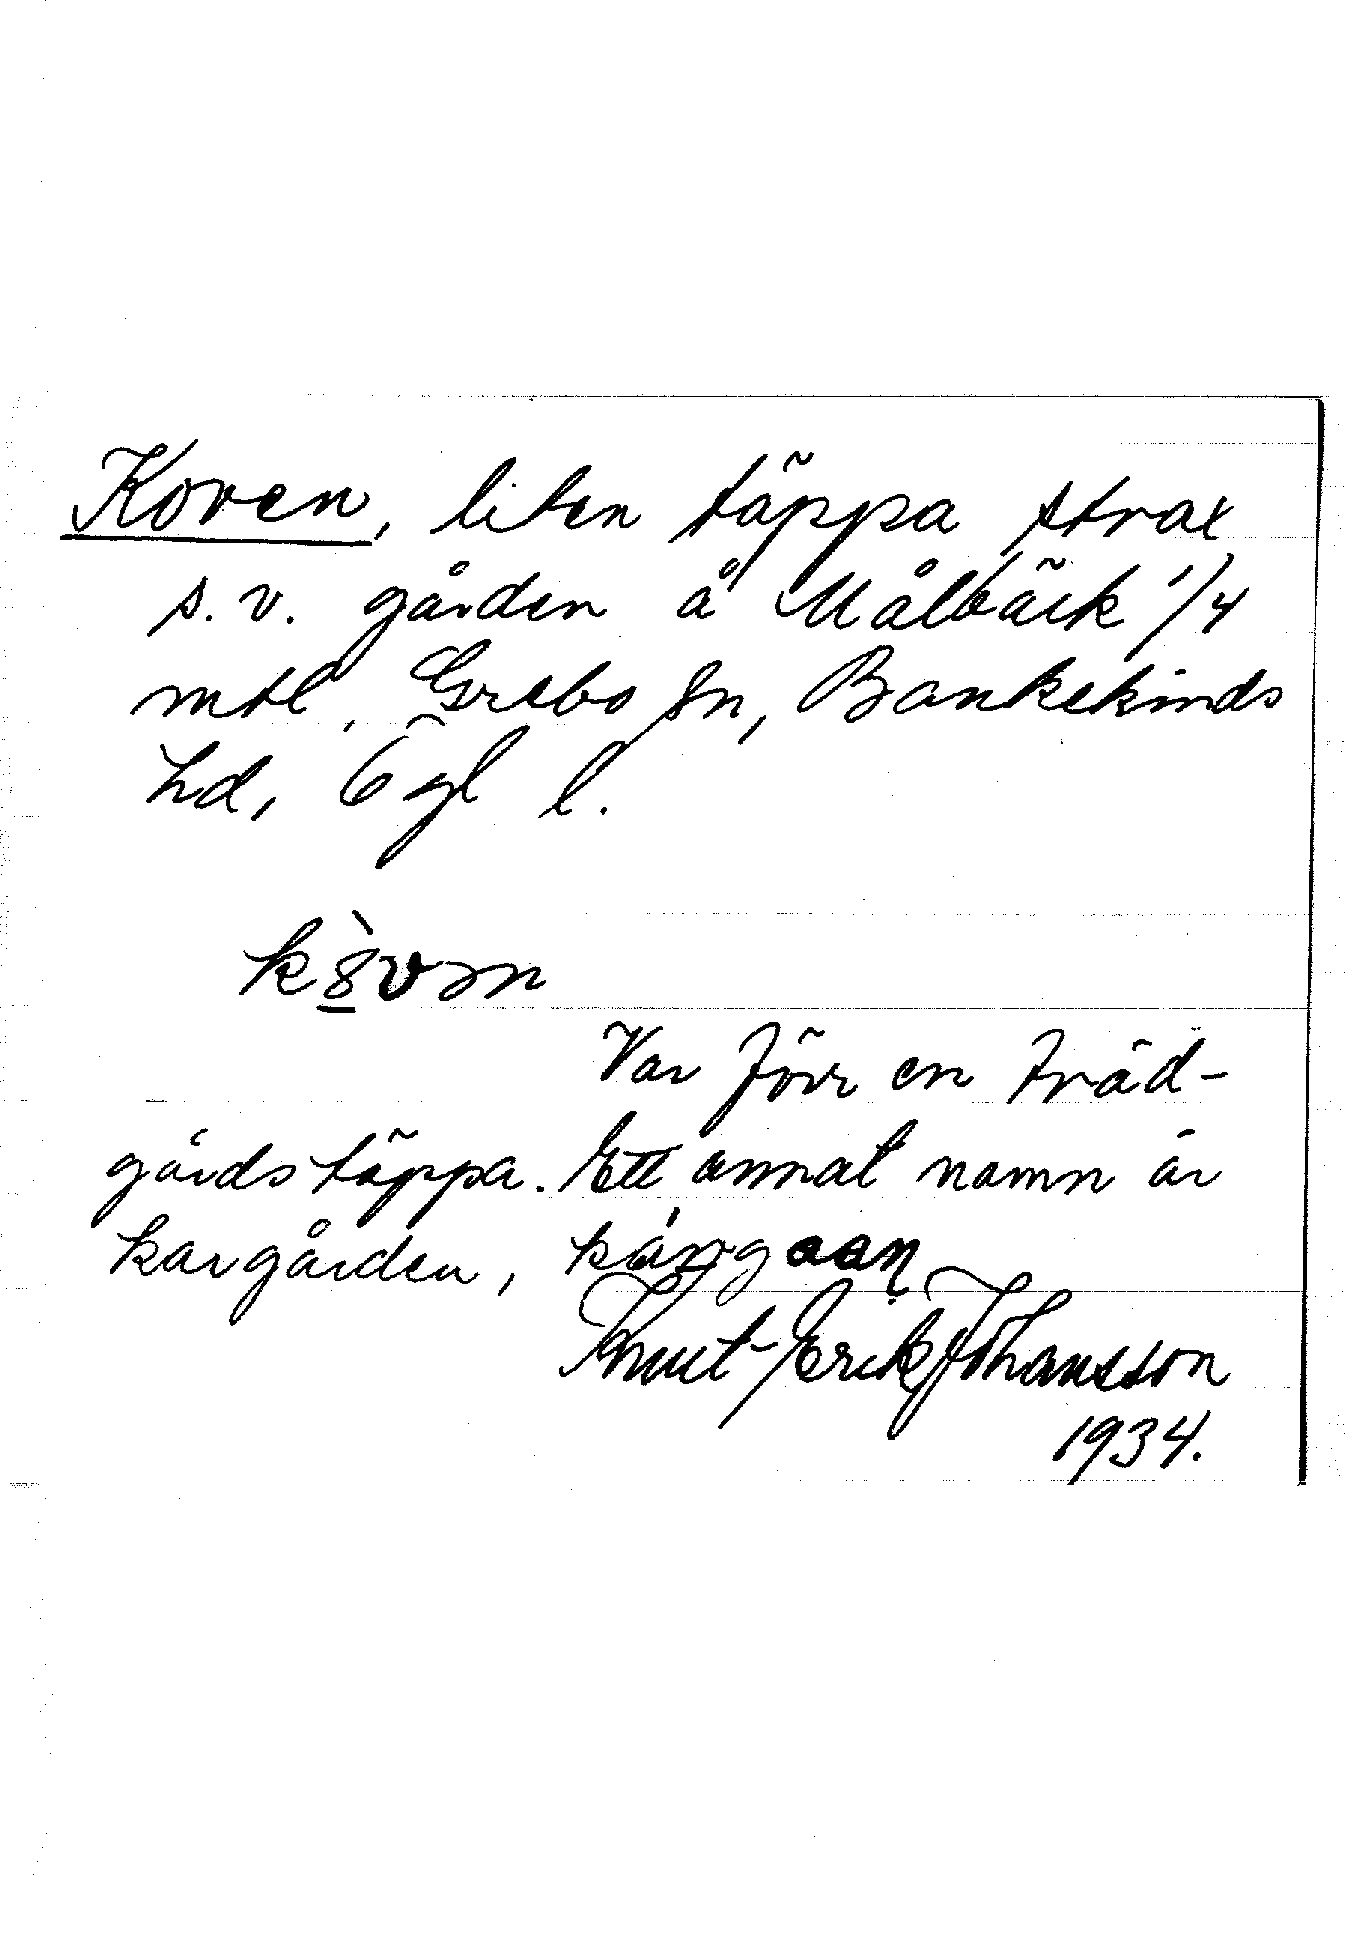 Koven, liten täppa strax
s.v. gården å Målbäck 1/4
mtl, Grebo sn, Bankekinds
hd, Ögl l.
Var förr en träd-
gårdstäppa. Ett annat namn är
kargården,
Knut-Erik Johansson
1934.